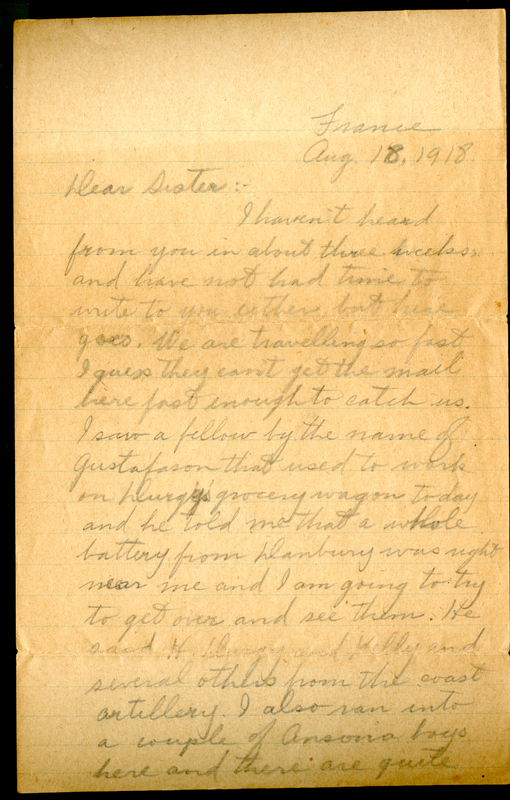 France
Aug. 18, 1918.
Dear Sister:-
I haven't heard
from you in about three weeks
and have not had time to
write to you either but here
goes. We are travelling so fast
I guess they can't get the mail
here fast enough to catch us.
I saw a fellow by the name of
Gustafason that used to work
on Durgy's grocery wagon today
and he told me that a whole
battery from Danbury was right
near me and I am going to try
to get over and see them. He
said H. Durgy and Kelly and
several others from the coast
artillery. I also ran into
a couple of Ansonia boys
here and there are quite